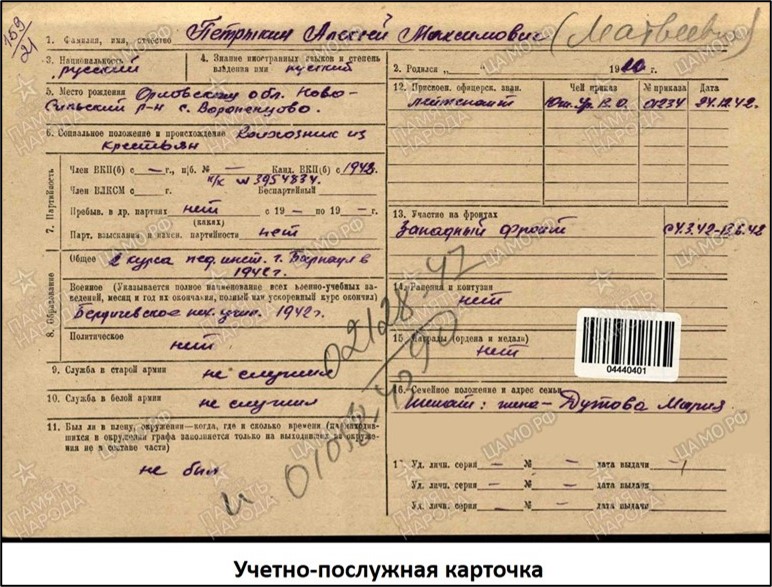 159/21
1. Фамилия, имя, отчество Петрыкин Алексей Максимович (Матвеевич)
3. Национальность русский
4. Знание иностранных языков и степень владения ими русский
5. Место рождения Орловской обл. Ново-
Сильский р-н с. Воропенцово.
6. Социальное положение и происхождение Колхозник из
крестьян
7. Партийность
Член ВКП(б) с — г., п/б. № — Канд. ВКП(б) с 1942 г.
к/к № 3954834.
Член ВЛКСМ с г. Беспартийный
Пребыв. в др. партиях нет с 19 — по 19 — г.
(каких)
Парт. взыскания партийности нет
8. Образование
Общее 2 курса пед. инст. г. Барнаул в
1942 г.
Военное (Указывается полное наименование всех военно-учебных за-
ведений, месяц и год их окончания, полный или ускоренный курс окончил)
Бердичевское пех. учил. 1942 г.
Политическое нет
9. Служба в старой армии не служил
10. Служба в белой армии не служил
11. Был ли в плену, окружении—когда, где и сколько времени (на находив-
шихся в окружении графа заполняется только на выходивших из окруже-
ния не в составе части)
не был
2. Родился „ “ 19 20 г.
12. Присвоен. офицерск. зван. Чей приказ № приказа Дата
лейтенант Юж. Ур. В. О. 01234 24.12.42.
13. Участие на фронтах
Западный фронт 04.3.42-13.6.42
14. Ранения и контузии
нет
15 Награды (ордена и медали)
нет
04440401
16. Семейное положение и адрес семьи
Женат: жена - Дутова Мария
1 Уд. личн. серия — № — дата выдачи —
Уд. личн. серия — № — дата выдачи —
Уд. личн. серия — № — дата выдачи —
02128-42
4090
и
ПАМЯТЬ НАРОДА
ЦАМО.РФ
Учетно-послужная карточка